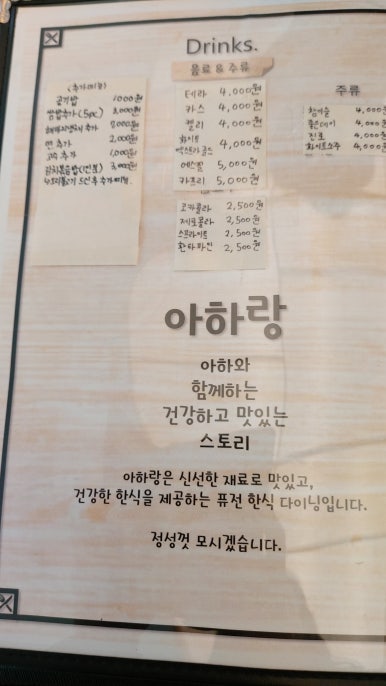 Drinks.
음료 & 주류
<추가메뉴>
공기밥 1000원
쌈밥추가 (5pc) 3,000원
추가 2,000원
면 추가 2,000원
고수 추가 1,000원
김치볶음밥 (1인분) 3,000원
드신 후 추가
테라 4,000원
카스 4,000원
켈리 4,000원
하이트
엑스트라 콜드 4,000원
에스랄 5,000원
카프리 5,000원
코카콜라 2,500원
제로콜라 2,500원
스프라이트 2,500원
환타 파인 2,500원
주류
참이슬 4,000
좋은데이 4,000
진로 4,000
화이트소주 4,000
아하랑
아하와
함께하는
건강하고 맛있는
스토리
아하랑은 신선한 재료로 맛있고,
건강한 한식을 제공하는 퓨전 한식 다이닝입니다.
정성껏 모시겠습니다.